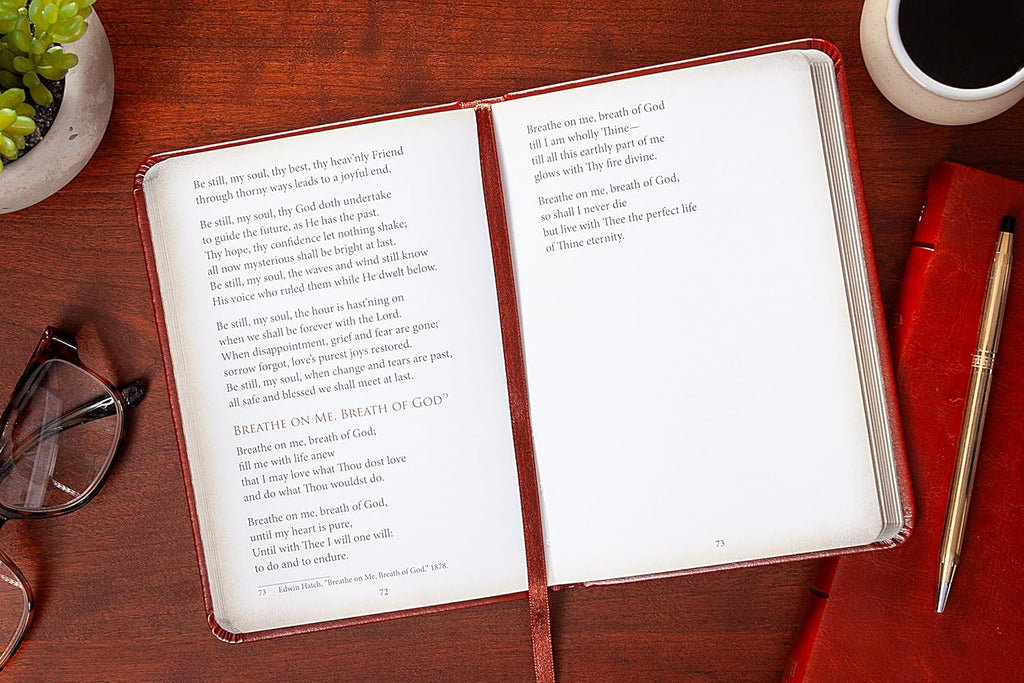 Be still, my soul, thy best, thy heav'nly Friend
through thorny ways leads to a joyful end.
Be still, my soul, thy God doth undertake
to guide the future, as He has the past.
Thy hope, thy confidence let nothing shake;
all now mysterious shall be bright at last.
Be still, my soul, the waves and wind still know
His voice who ruled them while He dwelt below.
Be still, my soul, the hour is hast'ning on
when we shall be forever with the Lord.
When disappointment, grief and fear are gone;
sorrow forgot, love's purest joys restored.
Be still, my soul, when change and tears are past,
all safe and blessed we shall meet at last.
BREATHE ON ME, BREATH OF GOD73
Breathe on me, breath of God;
fill me with life anew
that I may love what Thou dost love
and do what Thou wouldst do.
Breathe on me, breath of God,
until my heart is pure,
Until with Thee I will one will:
to do and to endure.
73 Edwin Hatch, "Breathe on Me, Breath of God," 1878.
72
Breathe on me, breath of God
till I am wholly Thine—
till all this earthly part of me
glows with Thy fire divine.
Breathe on me, breath of God,
so shall I never die
but live with Thee the perfect life
of Thine eternity.
73